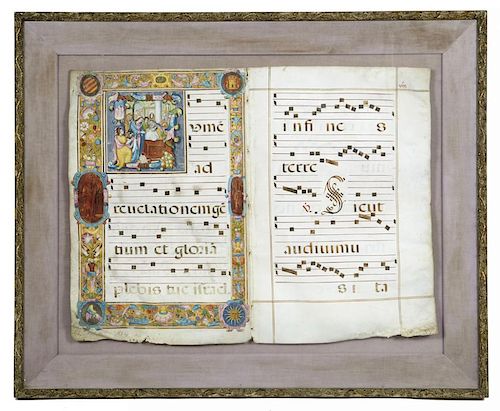 umē
ad
revelationem gē
tium et gloriā
plebis tue israel.
in fi ne s
terre
℣. Sicut
audivimu
s ita